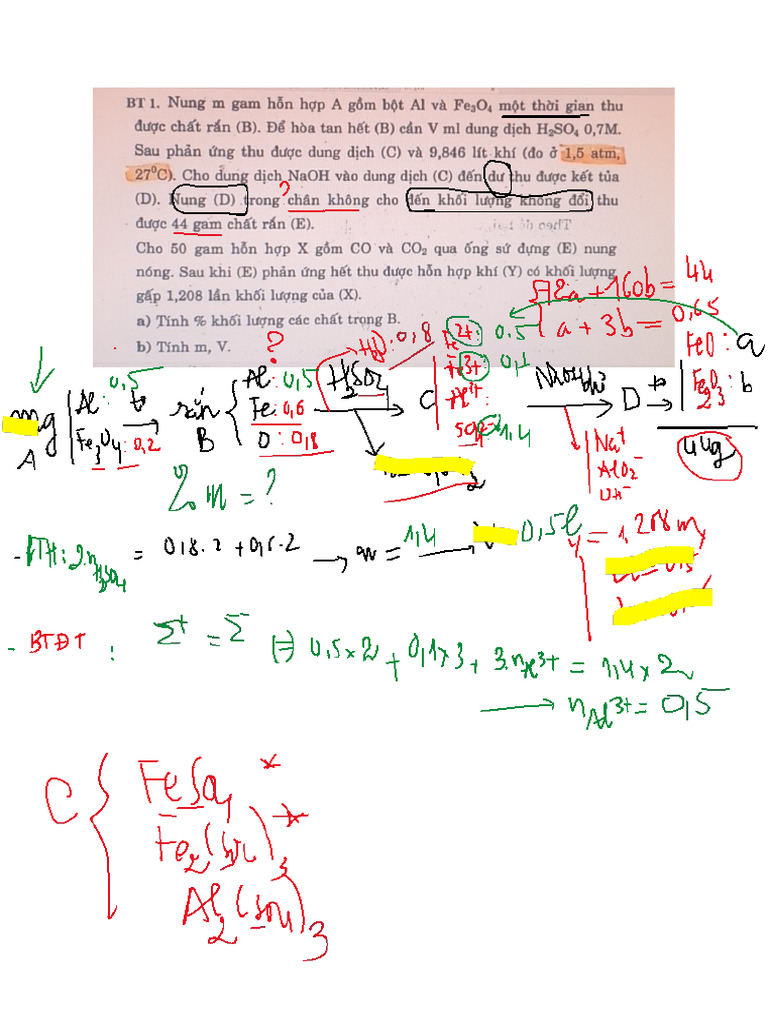 BT 1. Nung m gam hỗn hợp A gồm bột Al và Fe₃O₄ một thời gian thu
được chất rắn (B). Để hòa tan hết (B) cần V ml dung dịch H₂SO₄ 0,7M.
Sau phản ứng thu được dung dịch (C) và 9,846 lít khí (đo ở 1,5 atm,
27⁰C). Cho dung dịch NaOH vào dung dịch (C) đến dư thu được kết tủa
(D). Nung (D) trong chân không cho đến khối lượng không đổi thu
được 44 gam chất rắn (E).
Cho 50 gam hỗn hợp X gồm CO và CO₂ qua ống sứ đựng (E) nung
nóng. Sau khi (E) phản ứng hết thu được hỗn hợp khí (Y) có khối lượng
gấp 1,208 lần khối lượng của (X).
a) Tính % khối lượng các chất trong B.
b) Tính m, V.
?
72a + 160b = 44
a + 3b = 0,65
?
0,8
Fe 2+: 0,5
Fe 3+: 0,1
Al 3+:
1,4
mg
A
Al: 0,5
Fe₃O₄: 0,2
t⁰
rắn
B
Al: 0,5
Fe: 0,6
O: 0,8
H₂SO₄
C
NaOH dư
D
t⁰
FeO: a
Fe₂O₃: b
44g
Na⁺
AlO₂⁻
OH⁻
m = ?
= 0,8.2 + 0,6.2
1,4
0,5l
- BTĐT: Σ⁺ = Σ⁻ (=) 0,5x2 + 0,1x3 + 3.nAl³⁺ = 1,4x2
nAl³⁺ = 0,5
C
FeSO₄ *
Fe₂(SO₄)₃ *
Al₂(SO₄)₃